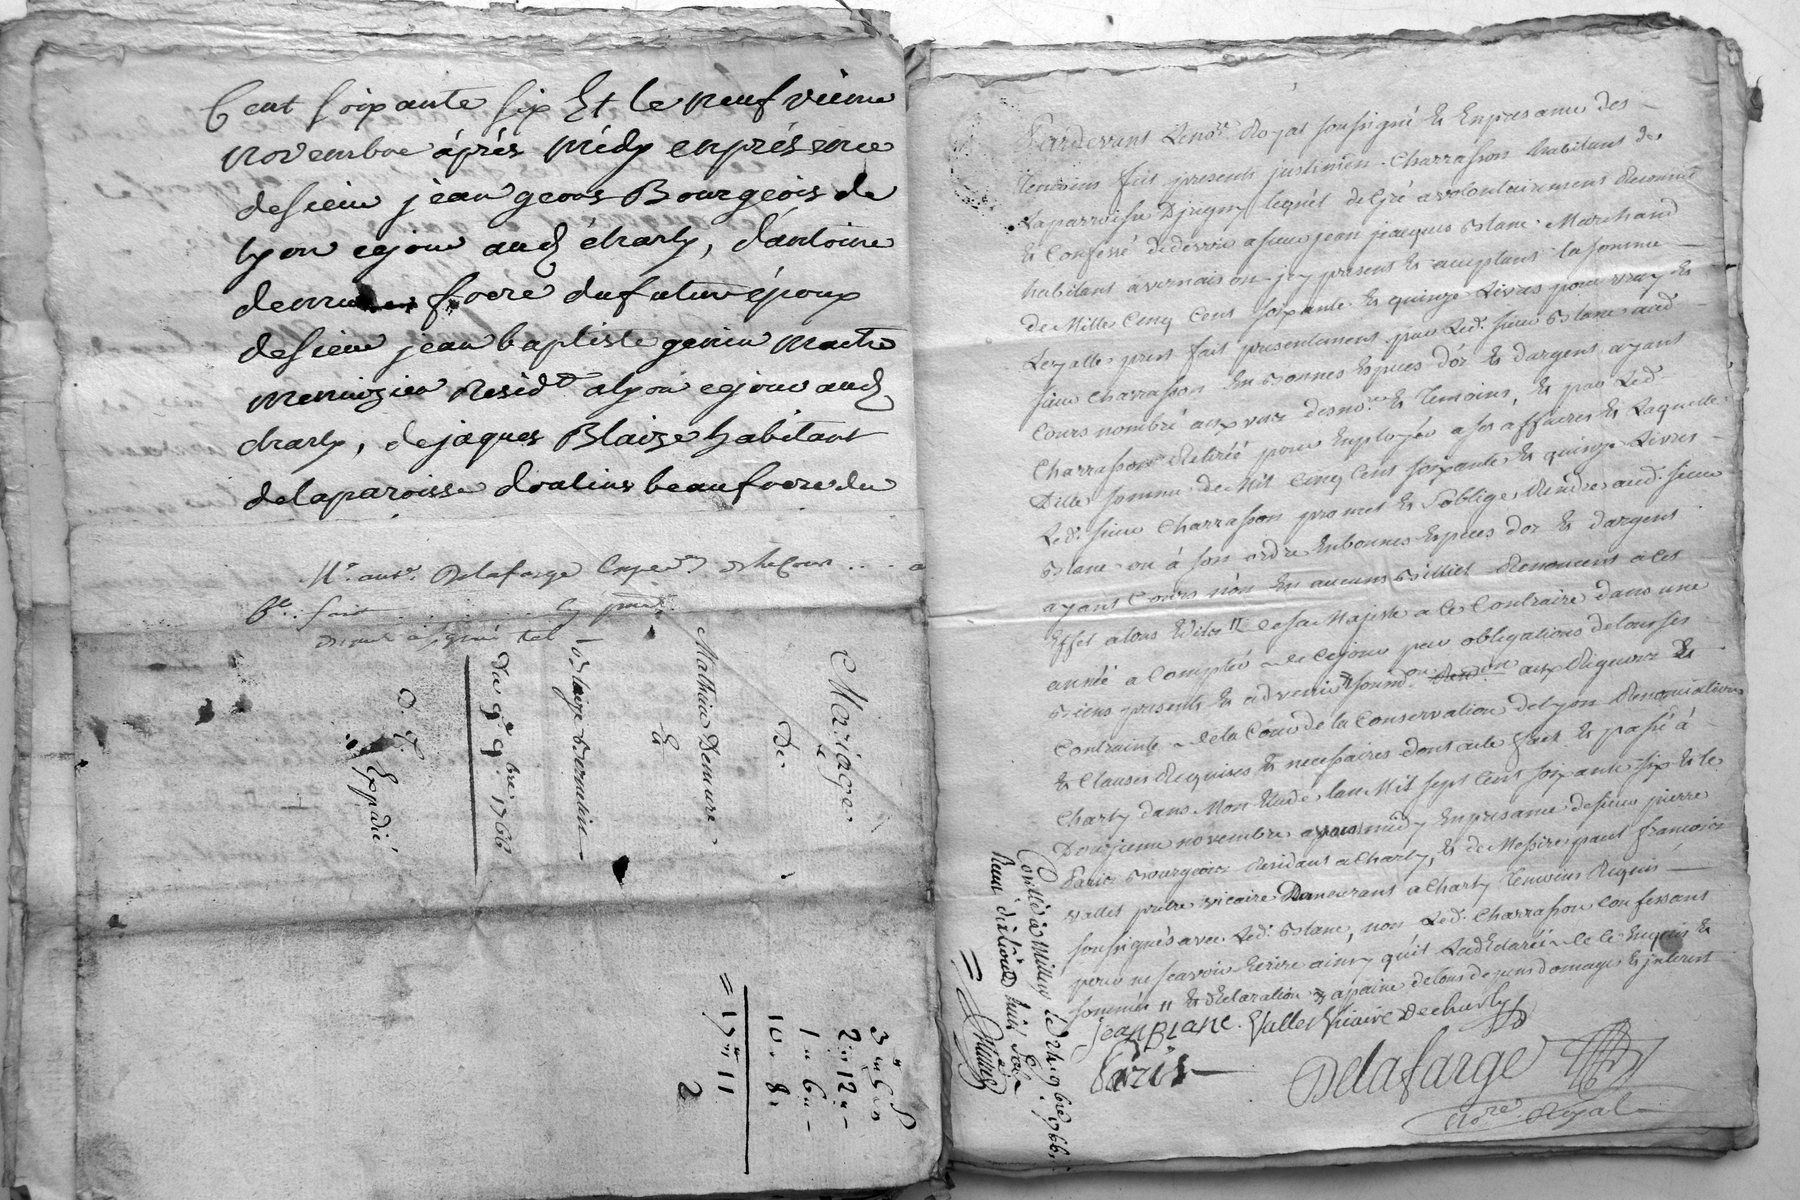 Cent soixante six Et le neufvieme
novembre áprés midy enprésence
desieur jean geons Bourgeois de
lyon cejour aud charly, d'antoine
demure frere dufutur époux
desieur jean baptiste genin maitre
menuizier Resid.t alyon cejour aud
charly, dejaques Blaize habitant
delaparoisse doulins beaufrere du
M.e ant.e Delafarge
fait
Mariage
De
Mathieu Demure
Et
Du 9e 9bre 1766
Expedié
3 " 6 "
2 " 12 "
1 " 6 "
10 . 8
= 17 " 11
2
Pardevant Leno.re Royal soussigné Et Enpresance des
temoins fut present justinien Charrasson habitant de
Laparroisse Dirigny lequel deGré avolontairement Reconnu
Et Confessé dedevoir asieur jean jacques Blanc Marchand
habitant avernaison jcy present Et acceptant lasomme
de Mille Cinq Cent soixante Et quinze Livres pour vray Et
Loyalle pret fait presentement par Led. sieur Blanc aud
sieur Charrasson En bonnes Especes dór Et dargent ayant
Cours nombré aux vüe desno.re Et temoins, Et par Led.
Charrasson Retiré pour Employer ases affaires Et Laquelle
Ditte somme de Mil Cinq Cent soixante Et quinze Livres
Led. sieur Charrasson promet Et soblige Rendre aud. sieur
Blanc ou á son ordre Enbonnes Especes dor Et dargent
ayant Cours non En aucuns Billiet Renoncent a Cet
Effet atous Edits " desa Majesté a le Contraire dans une
année a Compter de Cejour par obligations detous ses
Biens presents Et advenir soum.on aux Rigueurs Et
Contrainte de la Cour de la Conservation de Lyon Renonciations
Et Clauses Requises Et necessaires dont acte fait Et passé á
Charly dans Mon Etude lan Mil sept Cent soixante six Et le
Douzieme novembre apres midy Enpresance desieur pierre
Paris Bourgeois Residant acharly, Et de Messire paul francois
vallet pretre vicaire Demeurant a Charly temoins Requis
soussignés avec Led. Blanc, non Led. Charrasson Confessant
pour ne scavoir Ecrire ainsy quil Ladeclaré de Ce Enquis Et
sommé " Et declaration apaine detous depens domages Et interest
Jean BLanc. Vallet Vicaire De charly
Paris
Delafarge
no.re Royal
Conllé á Millery le 24 9bre 1766.
Reçu dix livres huit sols